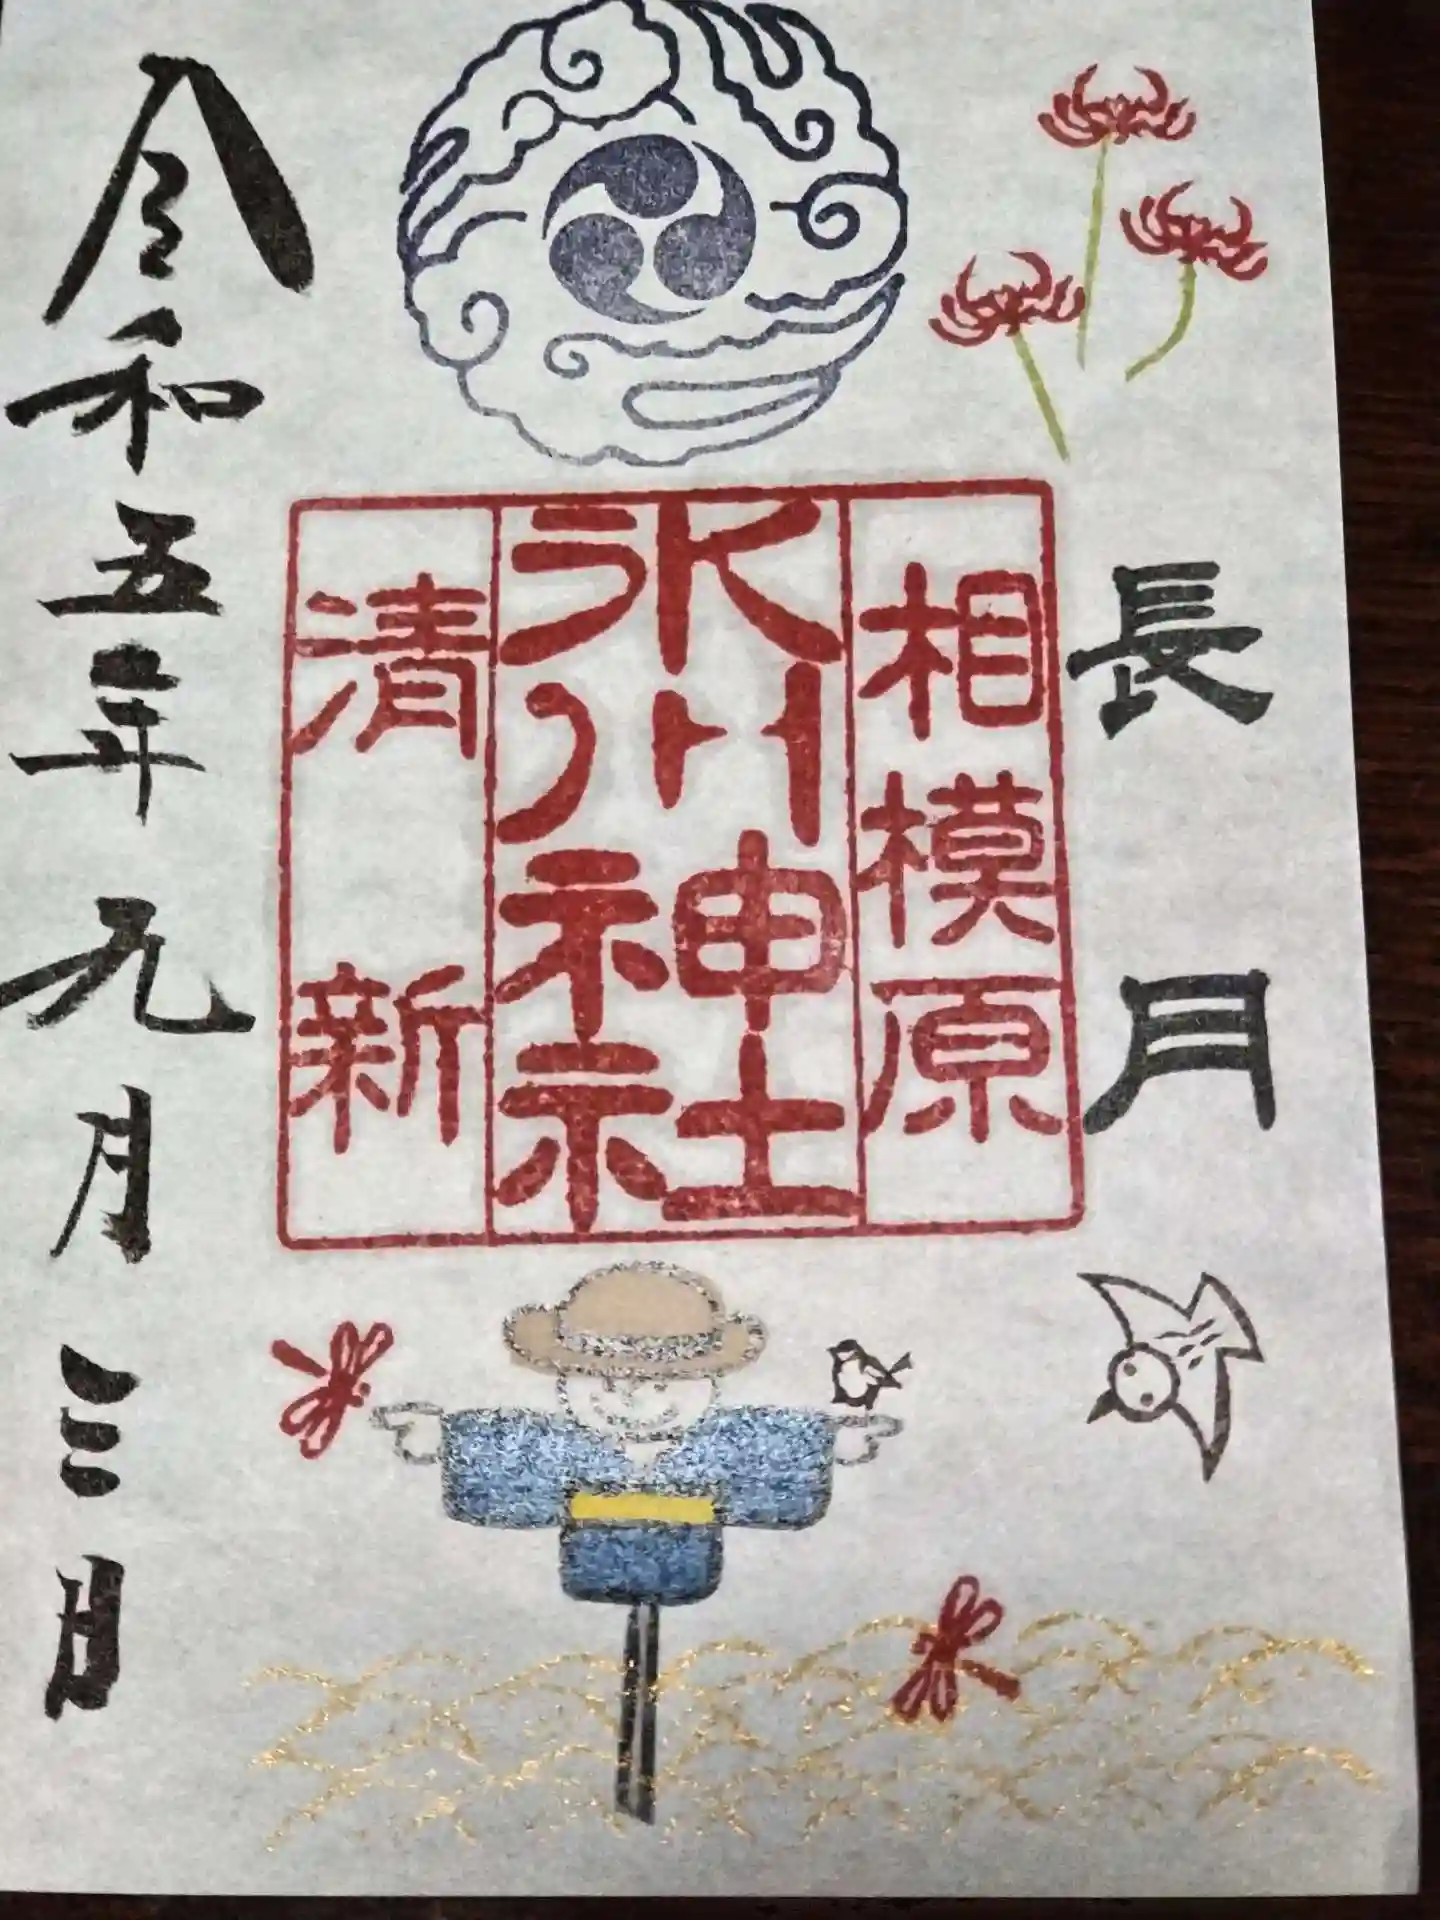 長月
相模原
氷川神社
清新
令和五年九月三日